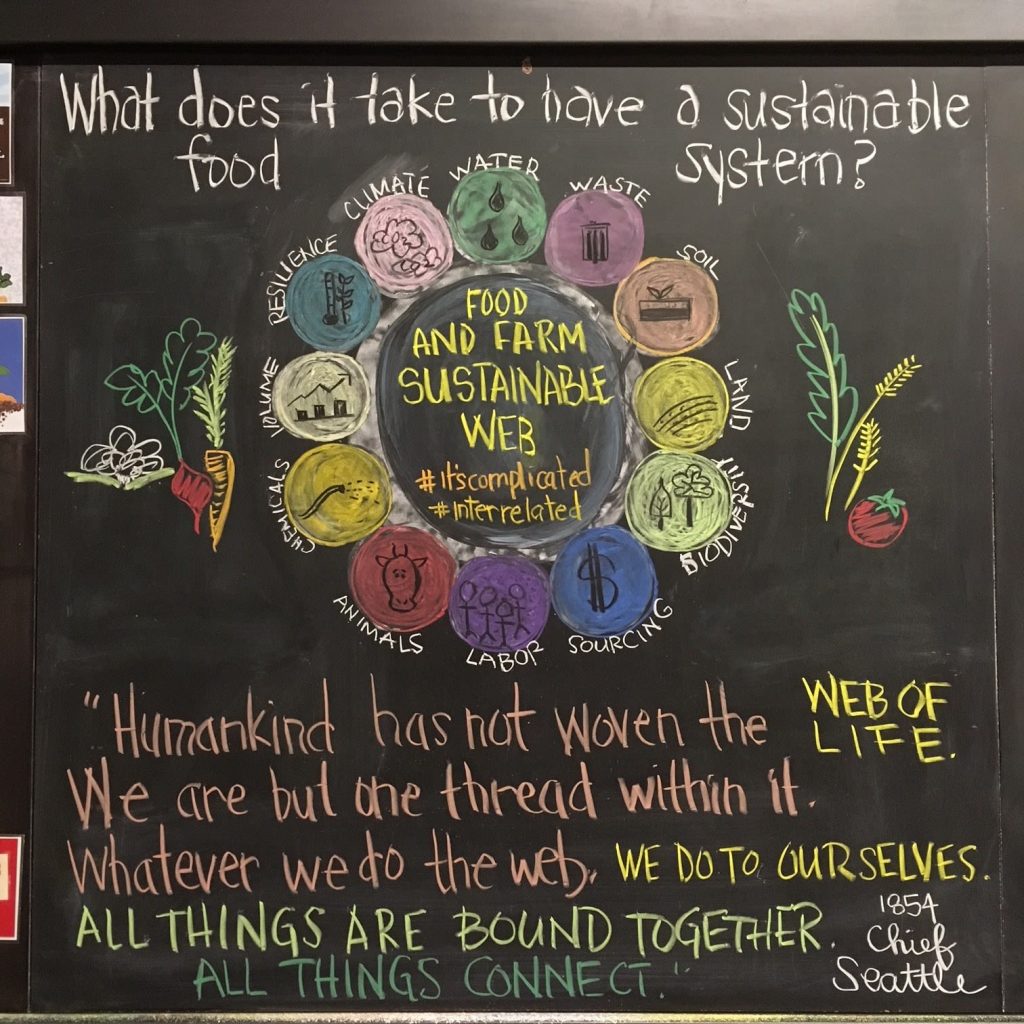 What does it take to have a sustainable
food system?
WATER
WASTE
SOIL
LAND
BIODIVERSITY
SOURCING
LABOR
ANIMALS
CHEMICALS
VOLUME
RESILIENCE
CLIMATE
FOOD
AND FARM
SUSTAINABLE
WEB
#it'scomplicated
#interrelated
"Humankind has not woven the WEB OF
LIFE.
We are but one thread within it.
Whatever we do the web, WE DO TO OURSELVES.
ALL THINGS ARE BOUND TOGETHER.
ALL THINGS CONNECT."
1854
Chief
Seattle